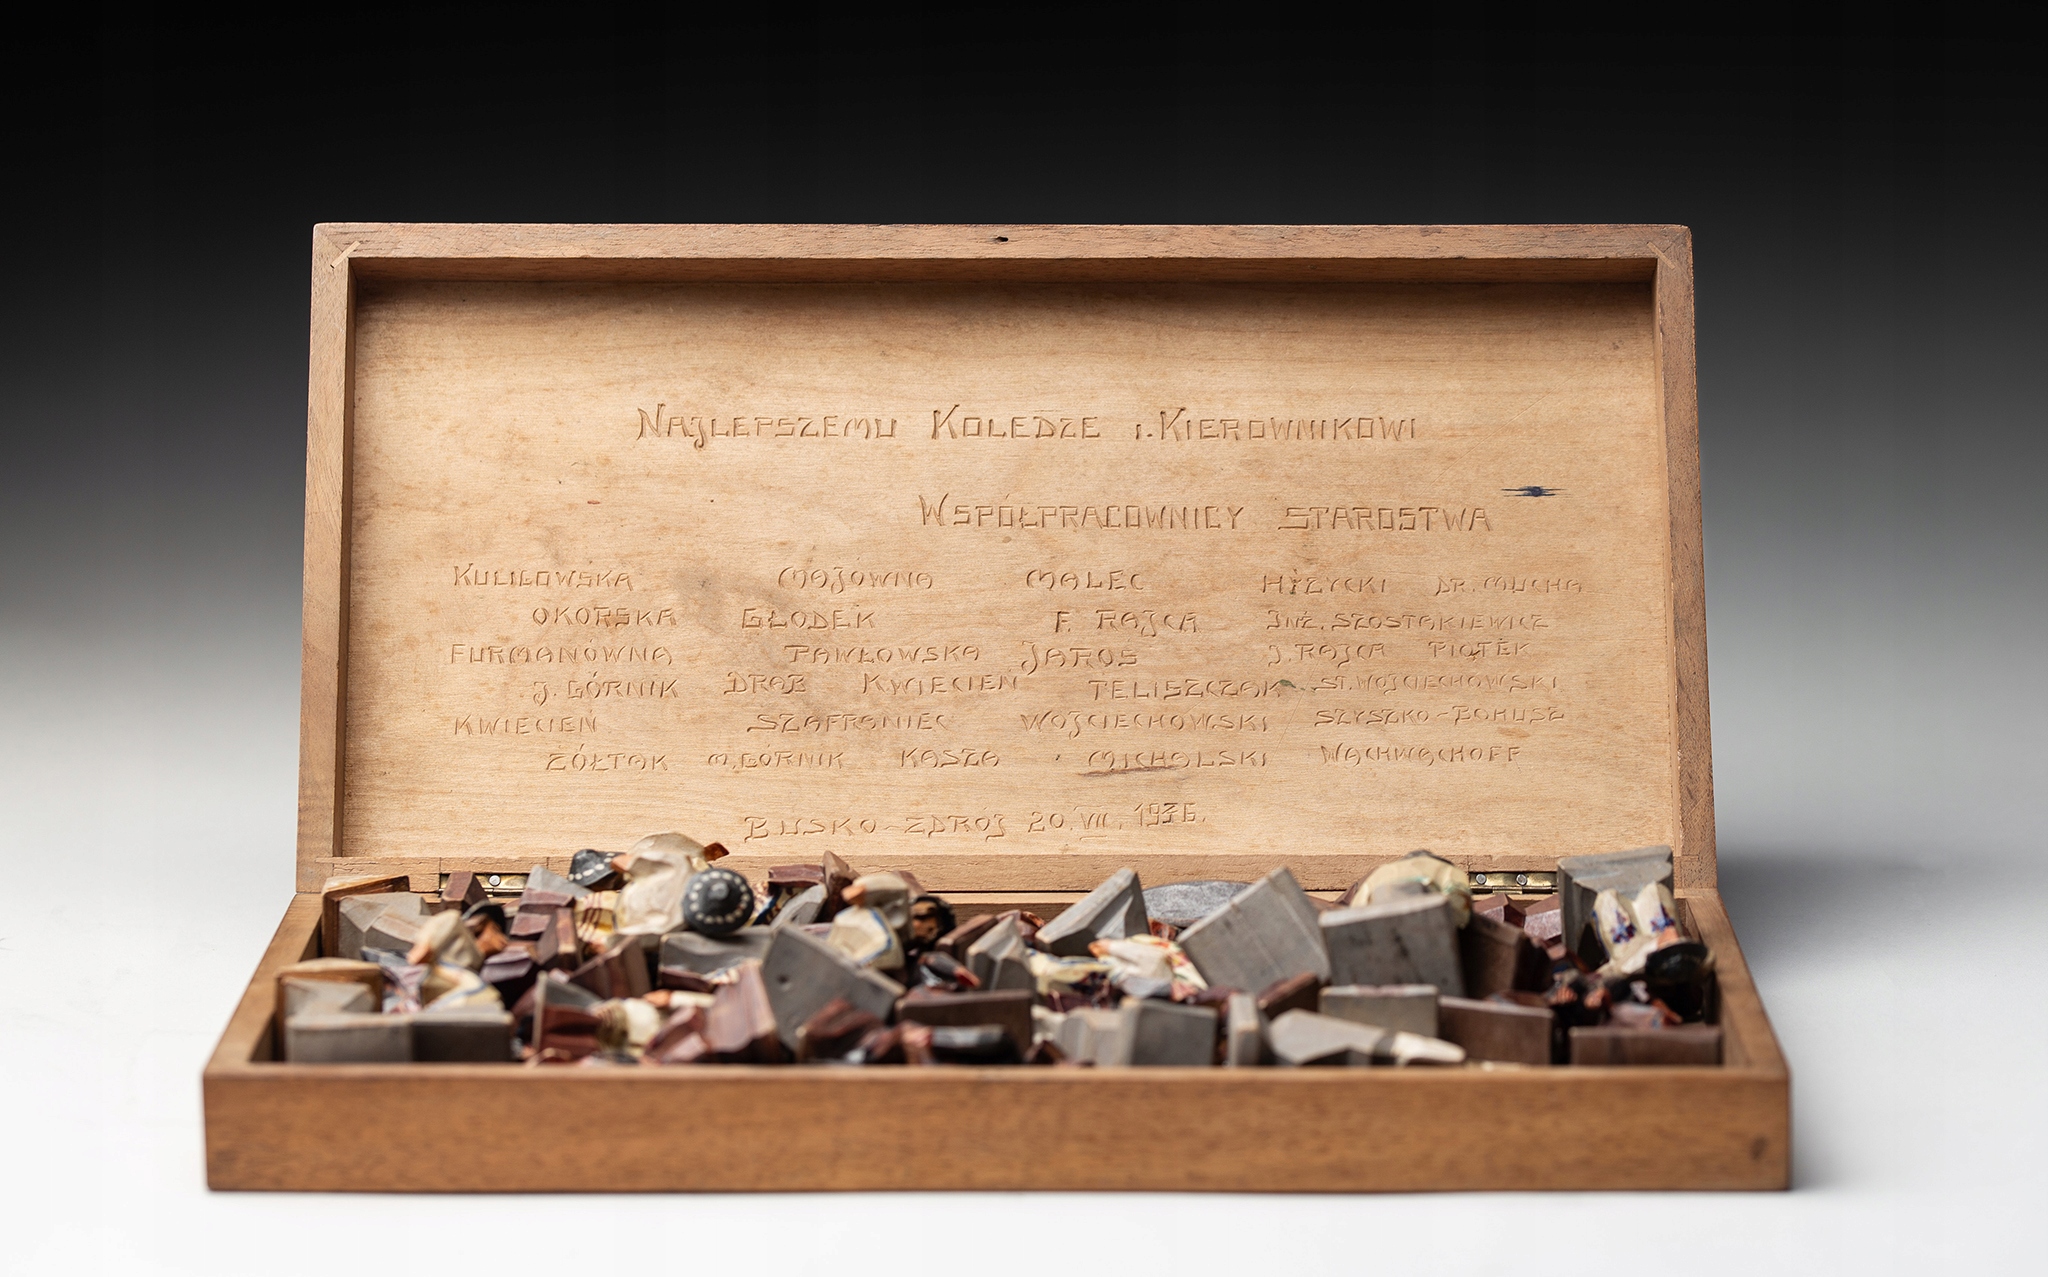 NAJLEPSZEMU KOLEDZE i. KIEROWNIKOWI
WSPÓŁPRACOWNICY STAROSTWA
KULIŁOWSKA MAJÓWNA MALEC HIŻYCKI DR. MUCHA
OKORSKA GŁODEK F. RAJCA INŻ. SZOSTAKIEWICZ
FURMANÓWNA PAWŁOWSKA JAROS J. RAJCA PIĄTEK
J. GÓRNIK DRAB KWIECIEŃ TELISZCZAK ST. WOJCIECHOWSKI
KWIECIEŃ SZAFRANIEC WOJCIECHOWSKI SZYSZKO-BOHUSZ
ŻÓŁTAK M. GÓRNIK KASZA MICHALSKI WACHWACHOFF
BUSKO-ZDRÓJ 20. VII. 1936.